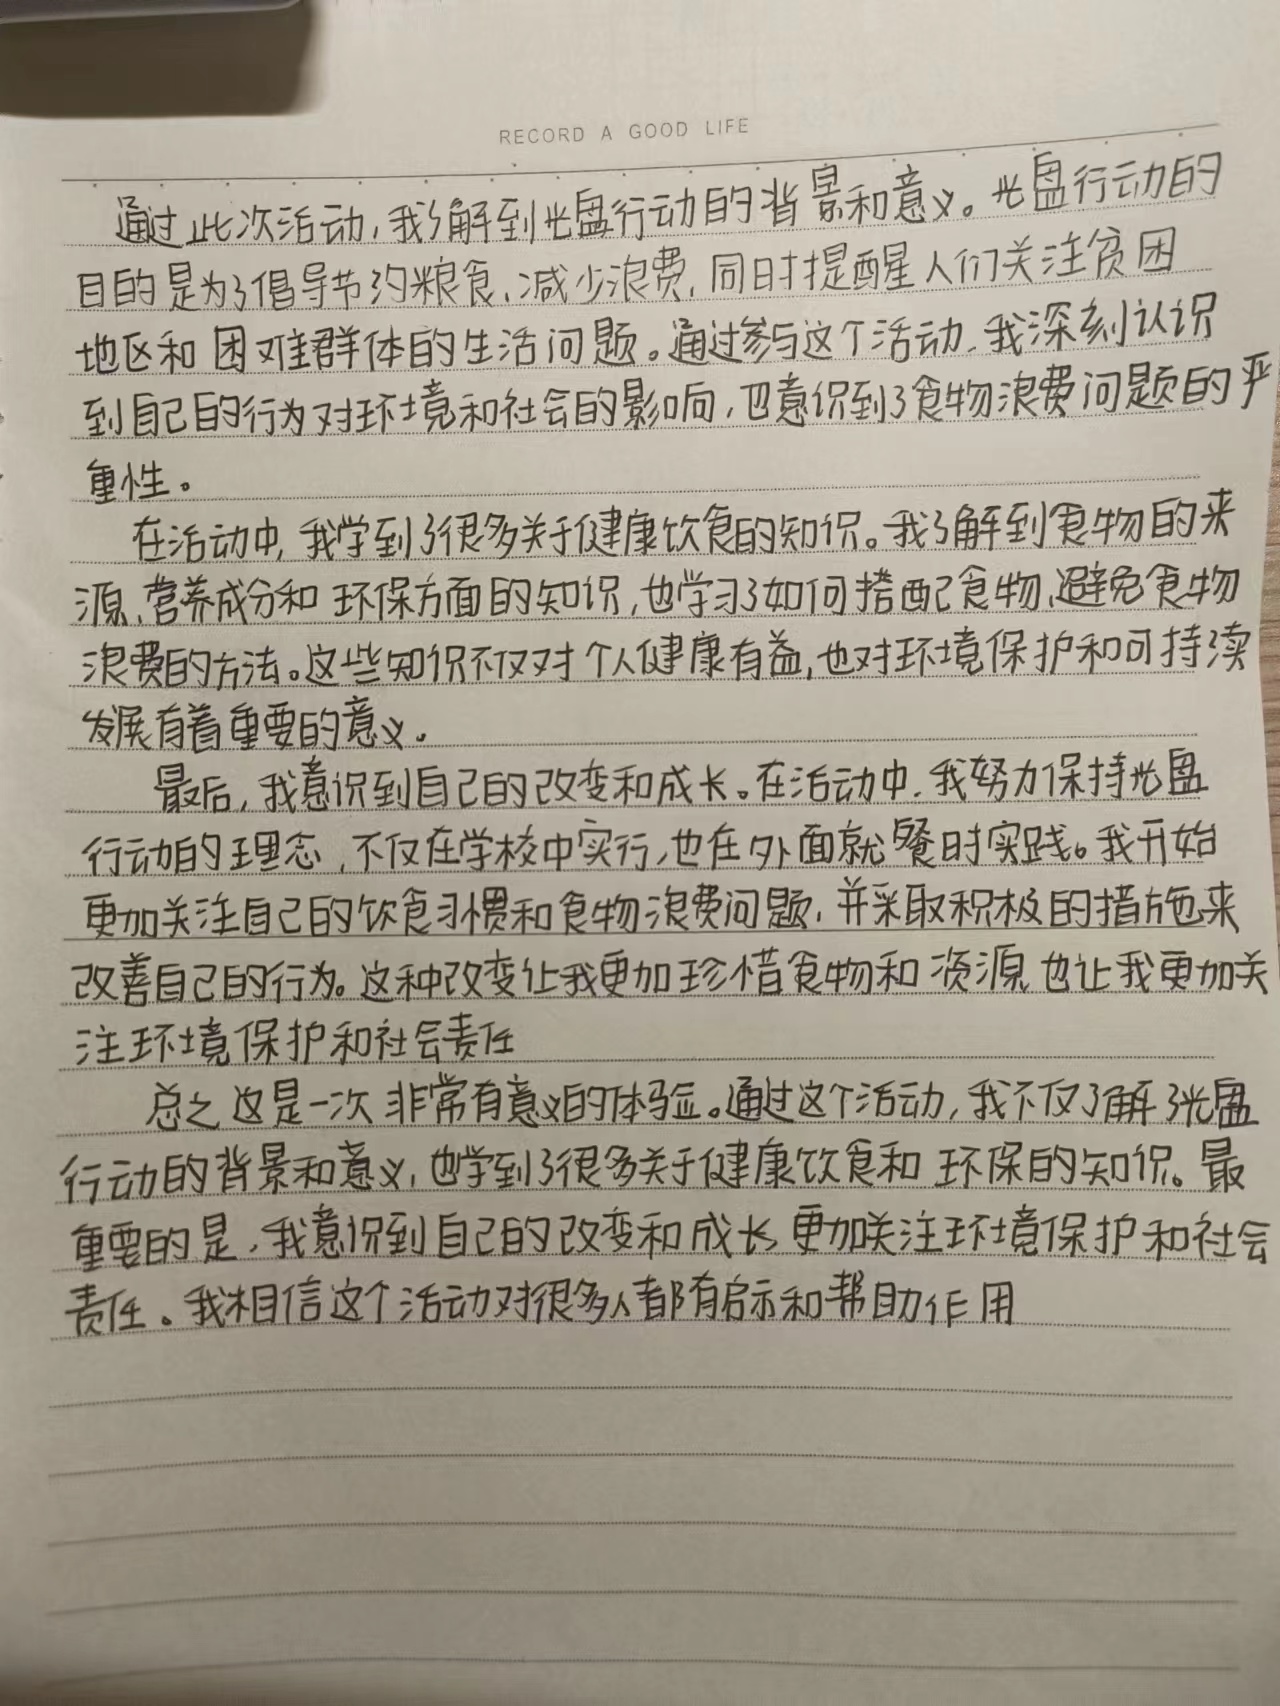 RECORD A GOOD LIFE
通过此次活动,我了解到光盘行动的背景和意义。光盘行动的
目的是为了倡导节约粮食、减少浪费,同时提醒人们关注贫困
地区和困难群体的生活问题。通过参与这个活动,我深刻认识
到自己的行为对环境和社会的影响,也意识到了食物浪费问题的严
重性。
在活动中,我学到了很多关于健康饮食的知识。我了解到食物的来
源、营养成分和环保方面的知识,也学习了如何搭配食物、避免食物
浪费的方法。这些知识不仅对个人健康有益,也对环境保护和可持续
发展有着重要的意义。
最后,我意识到自己的改变和成长。在活动中,我努力保持光盘
行动的理念,不仅在学校中实行,也在外面就餐时实践。我开始
更加关注自己的饮食习惯和食物浪费问题,并采取积极的措施来
改善自己的行为。这种改变让我更加珍惜食物和资源,也让我更加关
注环境保护和社会责任
总之 这是一次非常有意义的体验。通过这个活动,我不仅了解了光盘
行动的背景和意义,也学到了很多关于健康饮食和环保的知识。最
重要的是,我意识到自己的改变和成长,更加关注环境保护和社会
责任。我相信这个活动对很多人都有启示和帮助作用